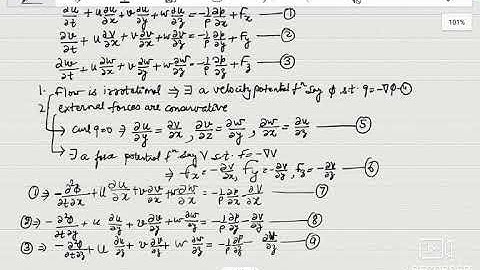 ∂u/∂t + u ∂u/∂x + v ∂u/∂y + w ∂u/∂z = -1/ρ ∂p/∂x + Fx — ①
∂v/∂t + u ∂v/∂x + v ∂v/∂y + w ∂v/∂z = -1/ρ ∂p/∂y + Fy — ②
∂w/∂t + u ∂w/∂x + v ∂w/∂y + w ∂w/∂z = -1/ρ ∂p/∂z + Fz — ③
101%
1. Flow is irrotational ⇒ ∃ a velocity potential fⁿ say φ s.t. q = -∇φ -④
2 external forces are conservative
→ curl q=0 ⇒ ∂u/∂y = ∂v/∂x, ∂v/∂z = ∂w/∂y, ∂w/∂x = ∂u/∂z — ⑤
→ ∃ a force potential fⁿ say V s.t. F = -∇V
⇒ Fx = -∂V/∂x, Fy = -∂V/∂y, Fz = -∂V/∂z — ⑥
① ⇒ -∂²φ/∂t∂x + u ∂u/∂x + v ∂v/∂x + w ∂w/∂x = -1/ρ ∂p/∂x - ∂V/∂x — ⑦
② ⇒ -∂²φ/∂t∂y + u ∂u/∂y + v ∂v/∂y + w ∂w/∂y = -1/ρ ∂p/∂y - ∂V/∂y — ⑧
③ ⇒ -∂²φ/∂t∂z + u ∂u/∂z + v ∂v/∂z + w ∂w/∂z = -1/ρ ∂p/∂z - ∂V/∂z — ⑨